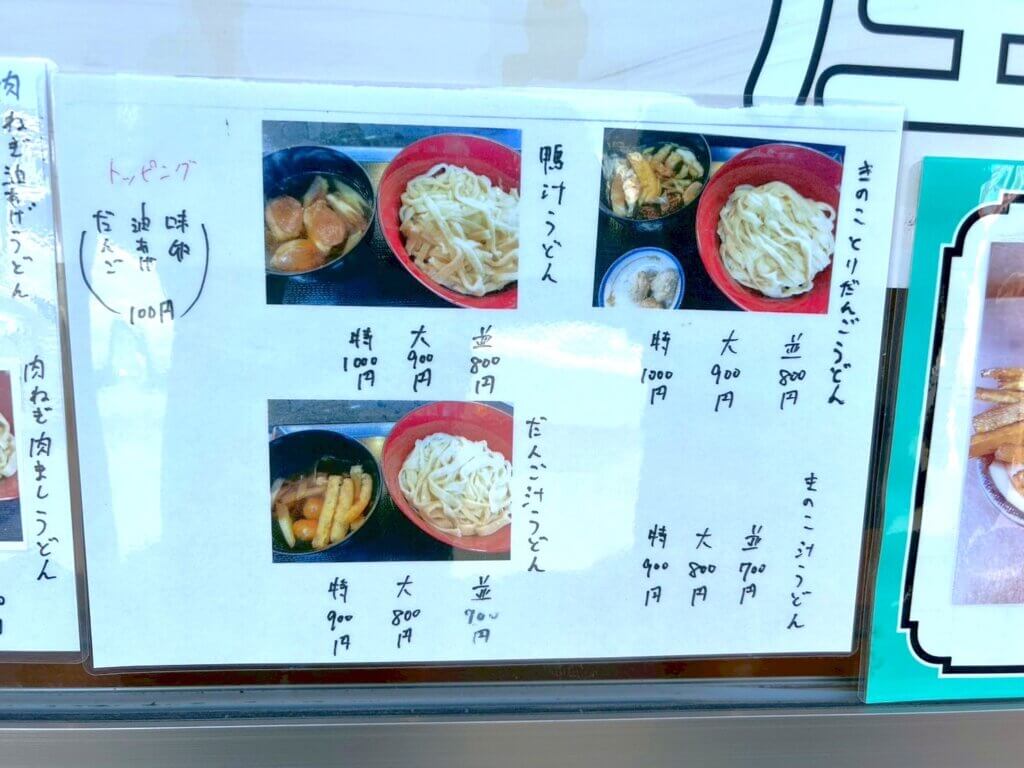 きのことりだんごうどん
並 800円
大 900円
特 1000円
鴨汁うどん
並 800円
大 900円
特 1000円
トッピング
味卵
油あげ
だんご
100円
きのこ汁うどん
並 700円
大 800円
特 900円
だんご汁うどん
並 700円
大 800円
特 900円
肉ねぎ油あげうどん
肉ねぎ肉ましうどん
円